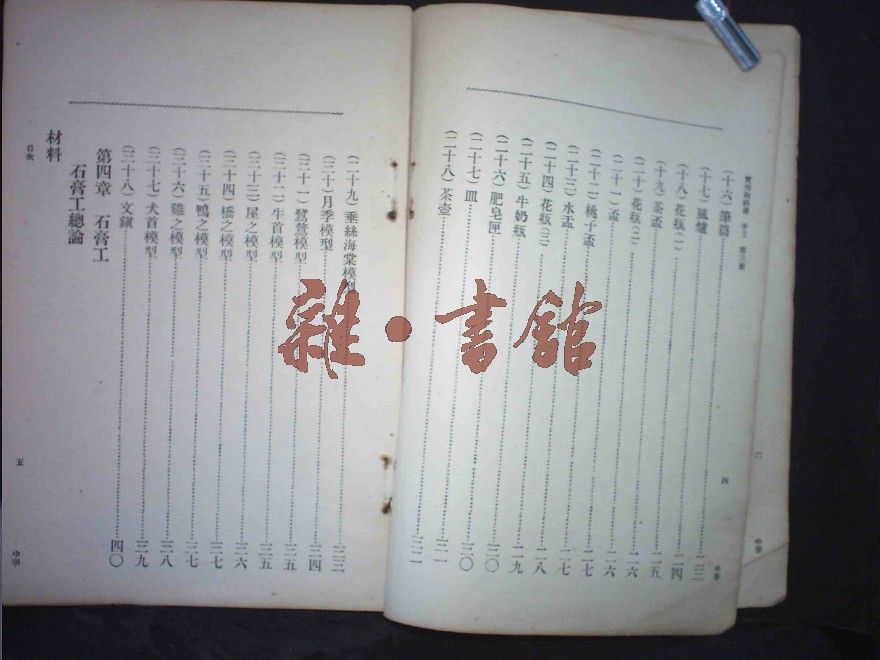 實用教科書 手工 第三册
四
中學
(十六)筆筒……二三
(十七)風爐……二四
(十八)花瓶(一)……二五
(十九)茶盃……二六
(二十)花瓶(二)……二六
(二十一)盃……二七
(二十二)桃子盃……二七
(二十三)水盂……二八
(二十四)花瓶(三)……二九
(二十五)牛奶瓶……三〇
(二十六)肥皂匣……三〇
(二十七)皿……三一
(二十八)茶壺……三二
(二十九)垂絲海棠模型……三三
(三十)月季模型……三四
(三十一)鴛鴦模型……三五
(三十二)牛首模型……三五
(三十三)屋之模型……三六
(三十四)橋之模型……三七
(三十五)鴨之模型……三七
(三十六)雞之模型……三八
(三十七)犬首模型……三九
(三十八)文鎮……四〇
第四章 石膏工
石膏工總論
材料
目次
五
中學
二
中學
雜·書館